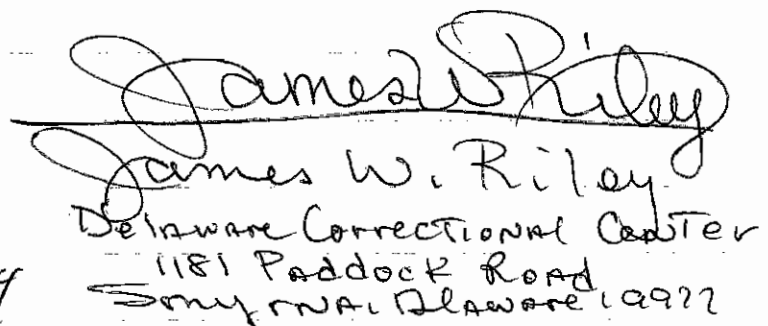 James W Riley
James W. Riley
Delaware Correctional Center
1181 Paddock Road
Smyrna, Delaware, 19977